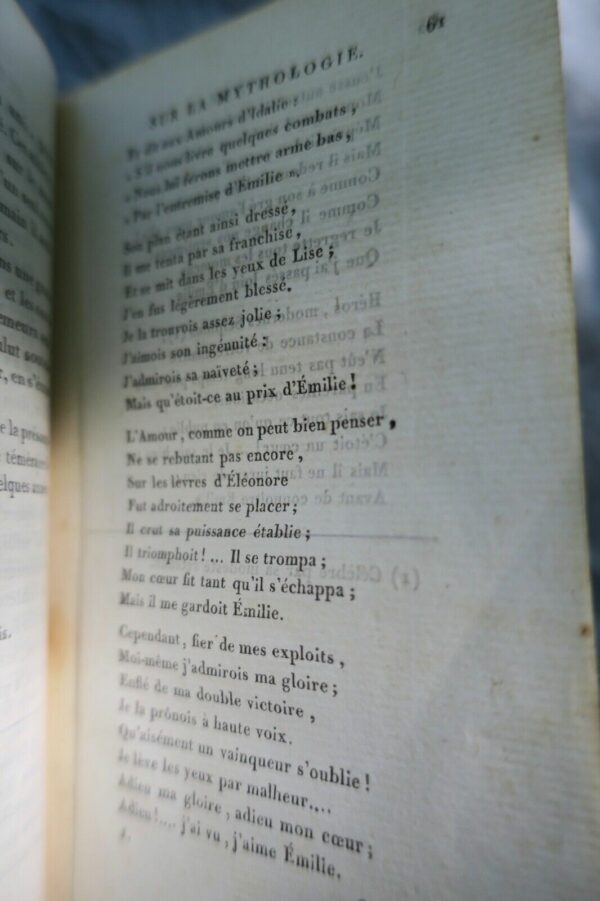 SUR LA MYTHOLOGIE. 61
Et dit aux Amours d'Idalie :
« S'il nous livre quelques combats,
» Nous lui ferons mettre arme bas,
» Par l'entremise d'Émilie ».
Son plan étant ainsi dressé,
Il me tenta par sa franchise,
Et se mit dans les yeux de Lise ;
J'en fus légèrement blessé.
Je la trouvois assez jolie ;
J'aimois son ingénuité ;
J'admirois sa naïveté ;
Mais qu'étoit-ce au prix d'Émilie !
L'Amour, comme on peut bien penser,
Ne se rebutant pas encore,
Sur les lèvres d'Éléonore
Fut adroitement se placer ;
Il crut sa puissance établie ;
Il triomphoit ! ... Il se trompa ;
Mon cœur fit tant qu'il s'échappa ;
Mais il me gardoit Émilie.
Cependant, fier de mes exploits,
Moi-même j'admirois ma gloire ;
Enflé de ma double victoire,
Je la prônois à haute voix.
Qu'aisément un vainqueur s'oublie !
Je lève les yeux par malheur....
Adieu ma gloire, adieu mon cœur ;
Adieu !.... j'ai vu, j'aime Émilie.